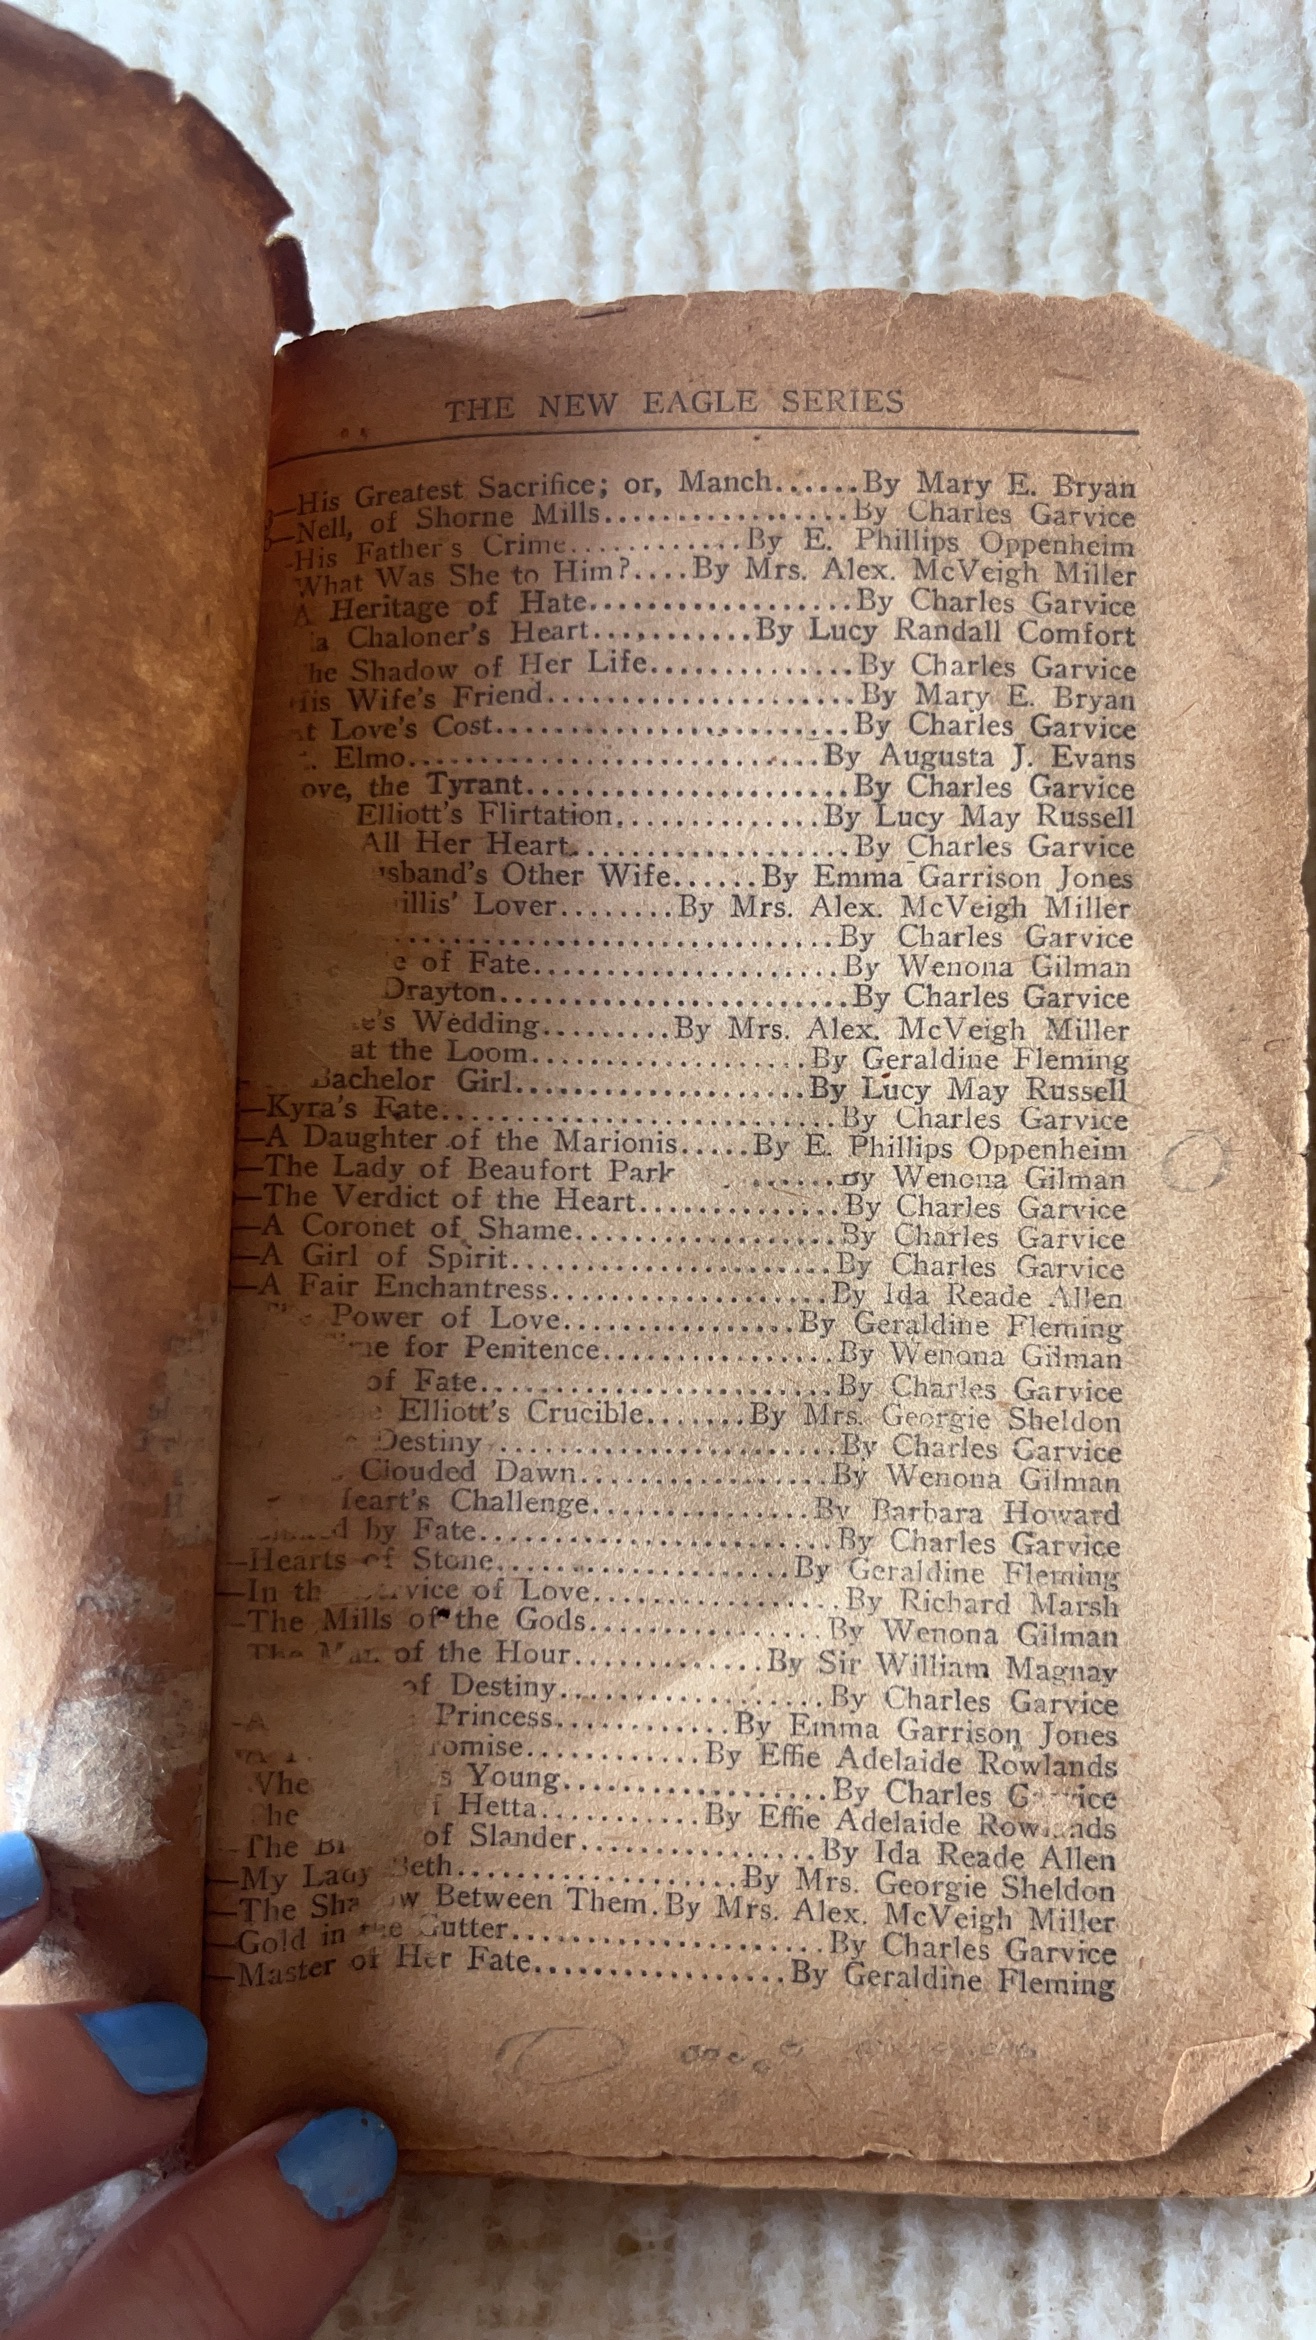 THE NEW EAGLE SERIES
—His Greatest Sacrifice; or, Manch......By Mary E. Bryan
—Nell, of Shorne Mills.................By Charles Garvice
-His Father's Crime............By E. Phillips Oppenheim
What Was She to Him?....By Mrs. Alex. McVeigh Miller
A Heritage of Hate..................By Charles Garvice
Chaloner's Heart...........By Lucy Randall Comfort
Shadow of Her Life..............By Charles Garvice
Wife's Friend.....................By Mary E. Bryan
Love's Cost........................By Charles Garvice
Elmo............................By Augusta J. Evans
the Tyrant......................By Charles Garvice
Elliott's Flirtation..............By Lucy May Russell
All Her Heart....................By Charles Garvice
Other Wife......By Emma Garrison Jones
Lover........By Mrs. Alex. McVeigh Miller
..............................By Charles Garvice
of Fate.....................By Wenona Gilman
Drayton........................By Charles Garvice
Wedding.........By Mrs. Alex. McVeigh Miller
at the Loom...................By Geraldine Fleming
Bachelor Girl....................By Lucy May Russell
—Kyra's Fate...........................By Charles Garvice
—A Daughter of the Marionis.....By E. Phillips Oppenheim
—The Lady of Beaufort Park .......By Wenona Gilman
—The Verdict of the Heart..............By Charles Garvice
—A Coronet of Shame..................By Charles Garvice
—A Girl of Spirit......................By Charles Garvice
—A Fair Enchantress...................By Ida Reade Allen
Power of Love................By Geraldine Fleming
for Penitence................By Wenona Gilman
of Fate........................By Charles Garvice
Elliott's Crucible.......By Mrs. Georgie Sheldon
Destiny........................By Charles Garvice
Clouded Dawn.................By Wenona Gilman
Challenge...............By Barbara Howard
by Fate........................By Charles Garvice
—Hearts of Stone....................By Geraldine Fleming
—In of Love.................By Richard Marsh
—The Mills of the Gods................By Wenona Gilman
The of the Hour.............By Sir William Magnay
of Destiny..................By Charles Garvice
-A Princess............By Emma Garrison Jones
............By Effie Adelaide Rowlands
Young..................By Charles
Hetta..........By Effie Adelaide
-The of Slander................By Ida Reade Allen
—My Lady Beth...................By Mrs. Georgie Sheldon
—The Between Them.By Mrs. Alex. McVeigh Miller
—Gold in the Gutter.....................By Charles Garvice
—Master of Her Fate.................By Geraldine Fleming